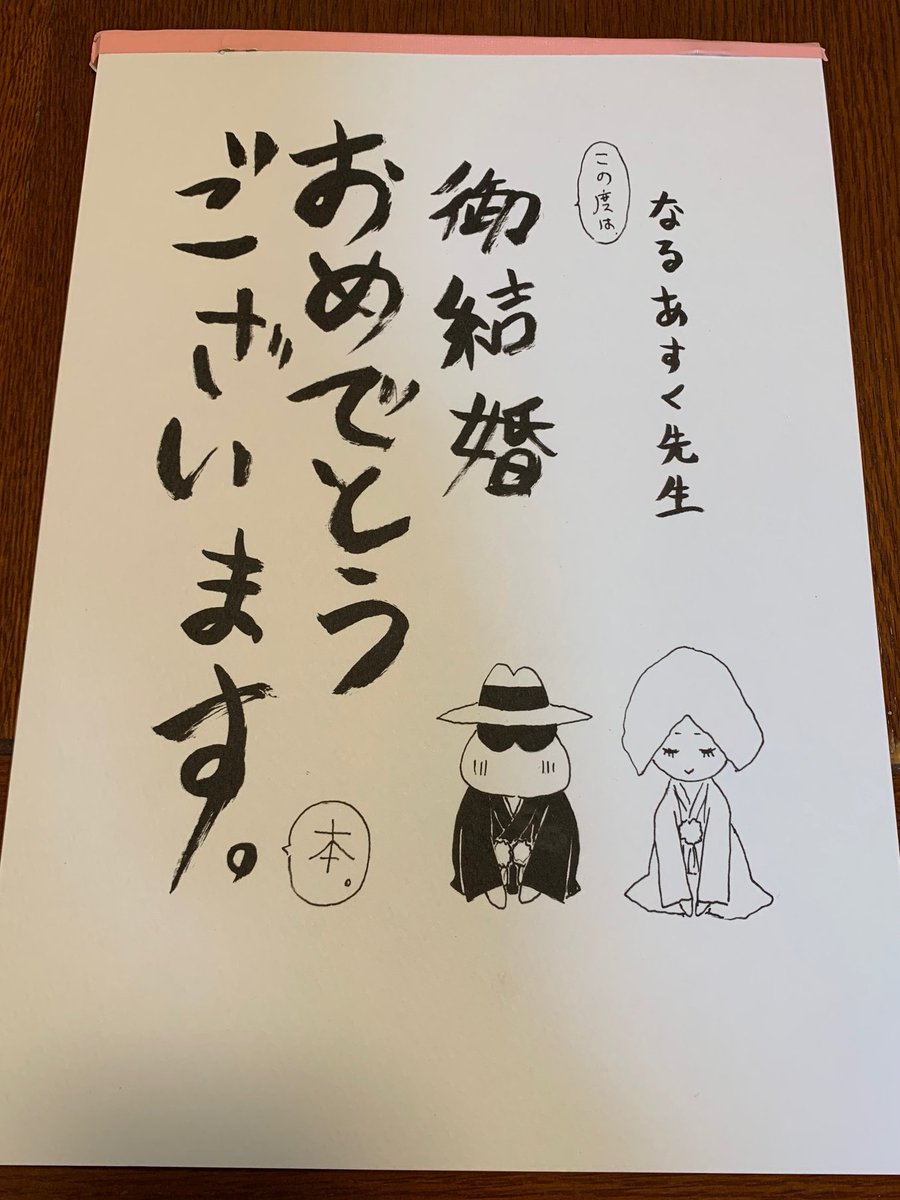 なるあすく先生
この度は、
御結婚
おめでとう
ございます。
本。